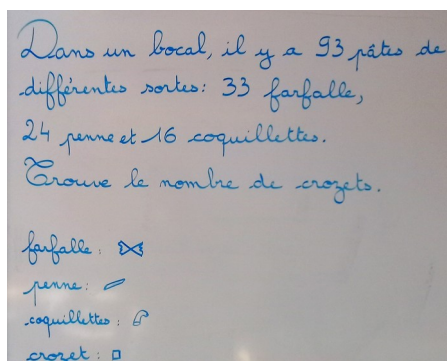 Dans un bocal, il y a 93 pâtes de
différentes sortes : 33 farfalle,
24 penne et 16 coquillettes.
Trouve le nombre de crozets.
farfalle :
penne :
coquillettes :
crozet :